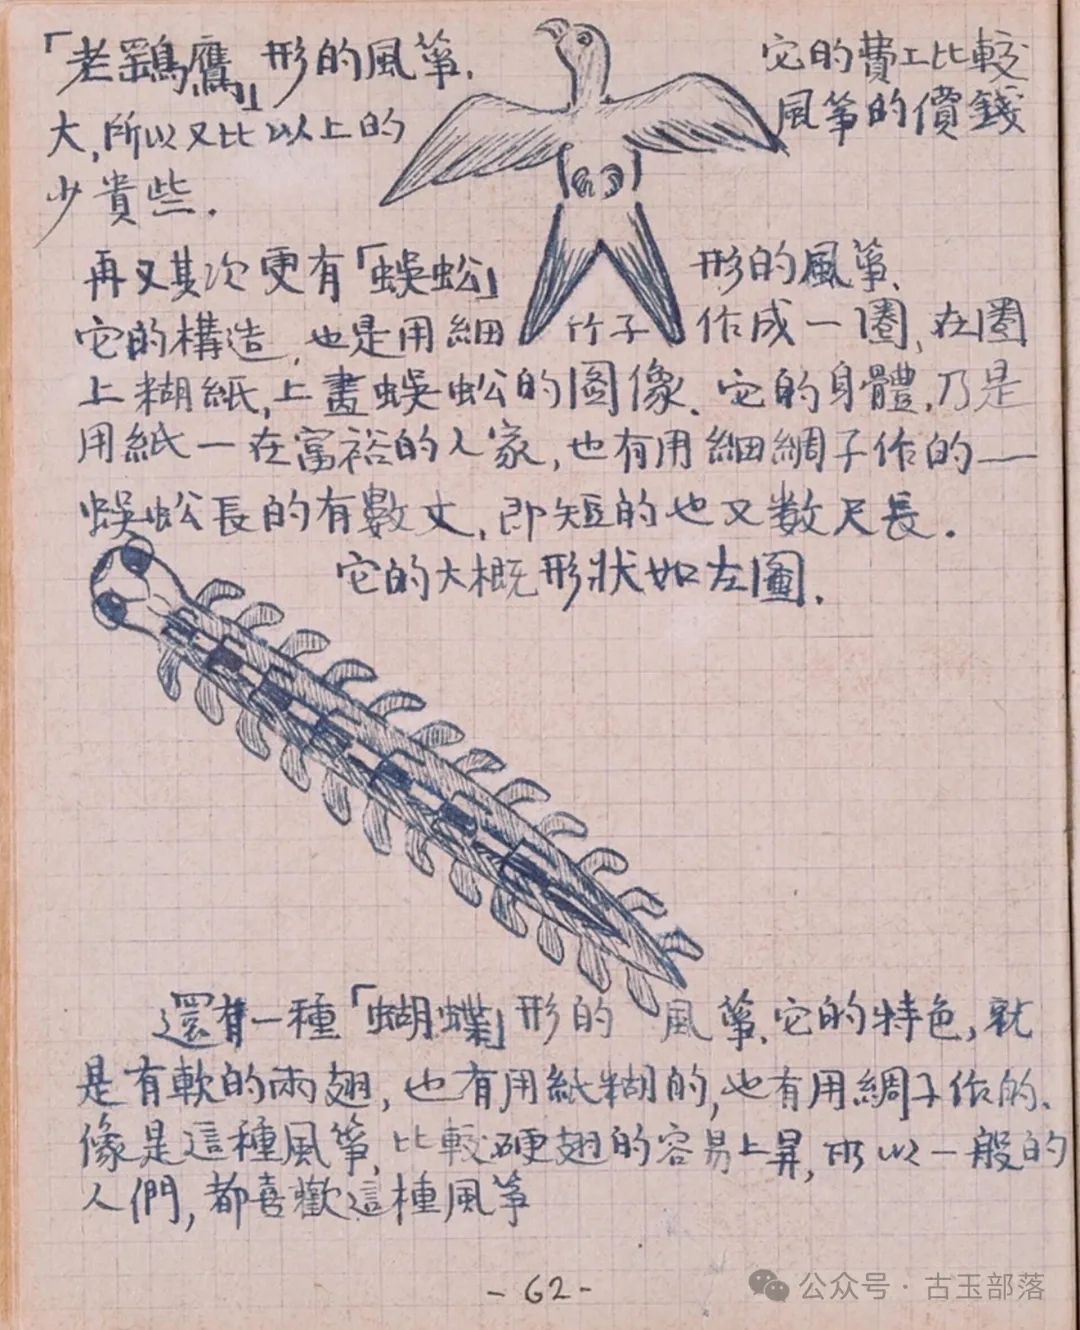 「老鷂鷹」形的風箏, 它的費工比較
大,所以又比以上的 風筝的價錢
少貴些.
再又其次更有「蜈蚣」 形的風箏,
它的構造,也是用細 竹子 作成一圈,在圈
上糊紙,上畫蜈蚣的圖像、它的身體,乃是
用紙一在富裕的人家,也有用細綢子作的一
蜈蚣長的有數丈,即短的也又数尺長.
它的大概形狀如左圖.
還有一種「蝴蝶」形的 風箏,它的特色,就
是有軟的兩翅,也有用紙糊的,也有用綢子作的、
像是這種風箏,比較硬翅的容易上昇,所以一般的
人們,都喜歡這種風筝
-62-
公众号·古玉部落